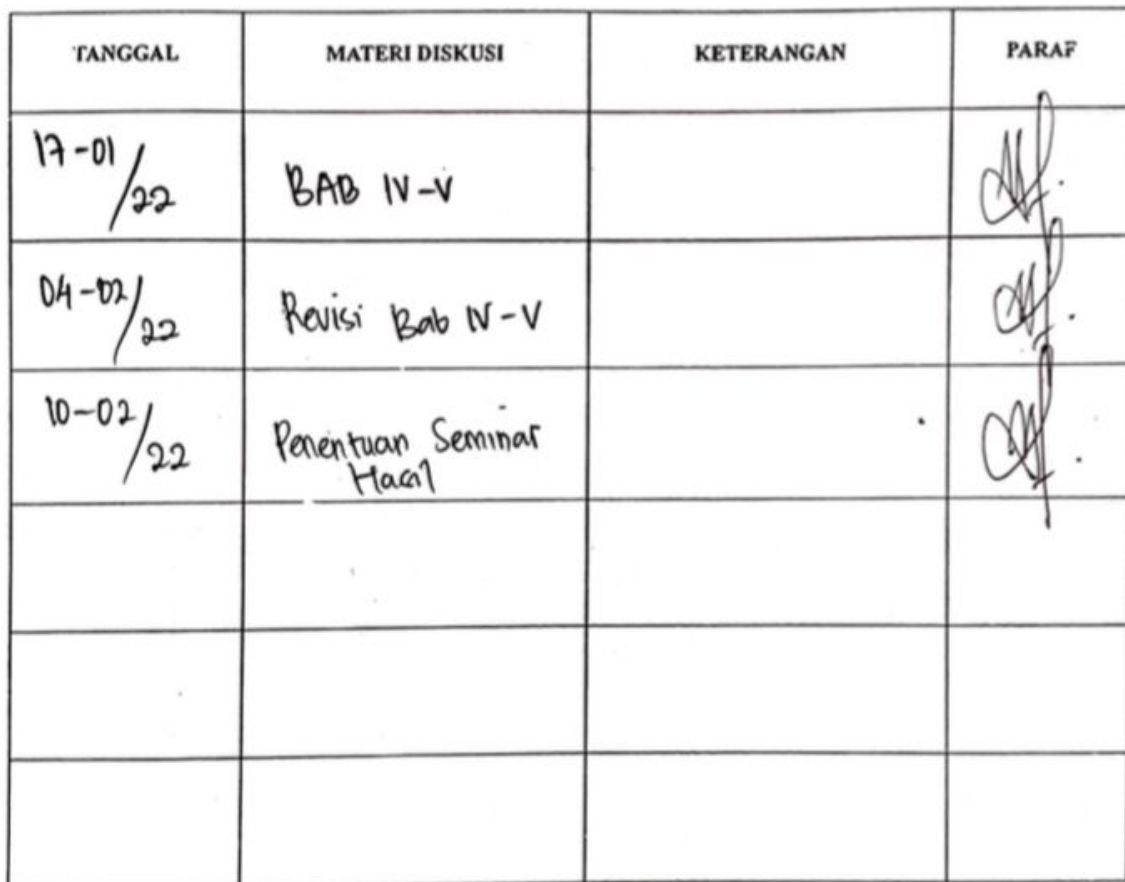 TANGGAL MATERI DISKUSI KETERANGAN PARAF
17-01/22 BAB IV-V
04-02/22 Revisi Bab IV-V
10-02/22 Penentuan Seminar
Hasil